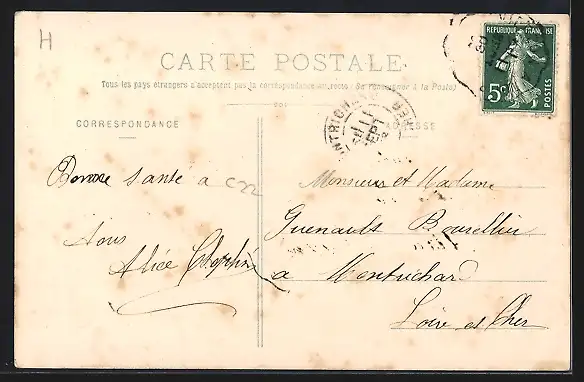 H
CARTE POSTALE
Tous les pays étrangers n'acceptent pas la correspondance au recto (Se renseigner à la Poste)
CORRESPONDANCE
ADRESSE
REPUBLIQUE FRANÇAISE
5c
POSTES
MONTRICHARD
11
SEPT
CHER
Bonne santé a
C22
tous
Alice
Monsieur et Madame
Guenault Bourellier
a Montrichard
Loir et Cher